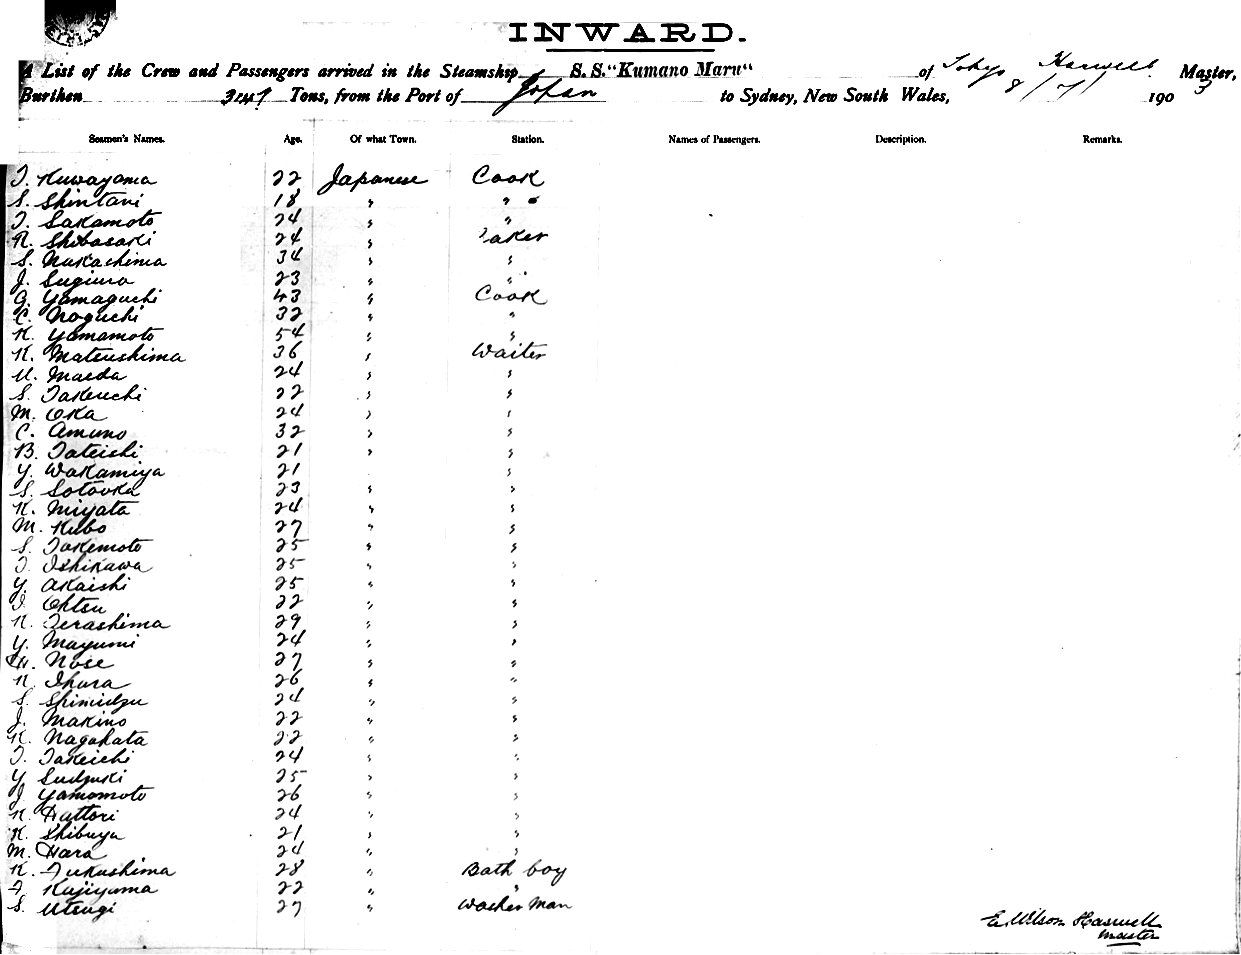 INWARD.
A List of the Crew and Passengers arrived in the Steamship S. S. "Kumano Maru" of Tokyo Haswell Master,
Burthen Tons, from the Port of Japan to Sydney, New South Wales, 8/7/ 1903
Seamen's Names. Age. Of what Town. Station. Names of Passengers. Description. Remarks.
T. Kuwayama 22 Japanese Cook
S. Shintani 18 " "
T. Sakamoto 24 " "
R. Shibasaki 24 " Baker
S. Nukashima 34 " "
J. Sugiura 23 " "
G. Yamaguchi 43 " Cook
C. Noguchi 32 " "
K. Yamamoto 54 " "
K. Matsushima 36 " Waiter
U. Maeda 24 " "
S. Takeuchi 22 " "
M. Oka 24 " "
C. Amuno 32 " "
B. Tateishi 21 " "
Y. Wakamiya 21 "
S. Sotooka 23 " "
K. Miyata 24 " "
M. Kubo 27 " "
S. Takemoto 25 " "
T. Ishikawa 25 " "
Y. Akaishi 25 " "
I. Ohtsu 22 " "
K. Terashima 29 " "
Y. Mayumi 24 " "
Nose 27 " "
K. Ihara 26 " "
S. Shimidzu 24 " "
J. Makino 22 " "
K. Nagahata 22 " "
T. Takeichi 24 " "
Y. Sudzuki 25 " "
J. Yamamoto 26 " "
K. Hattori 24 " "
K. Shibuya 21 " "
M. Hara 24 " "
K. Fukushima 28 " Bath boy
F. Kajiyama 22 " "
S. Utsugi 27 " Washer Man
E. Wilson Haswell
Master